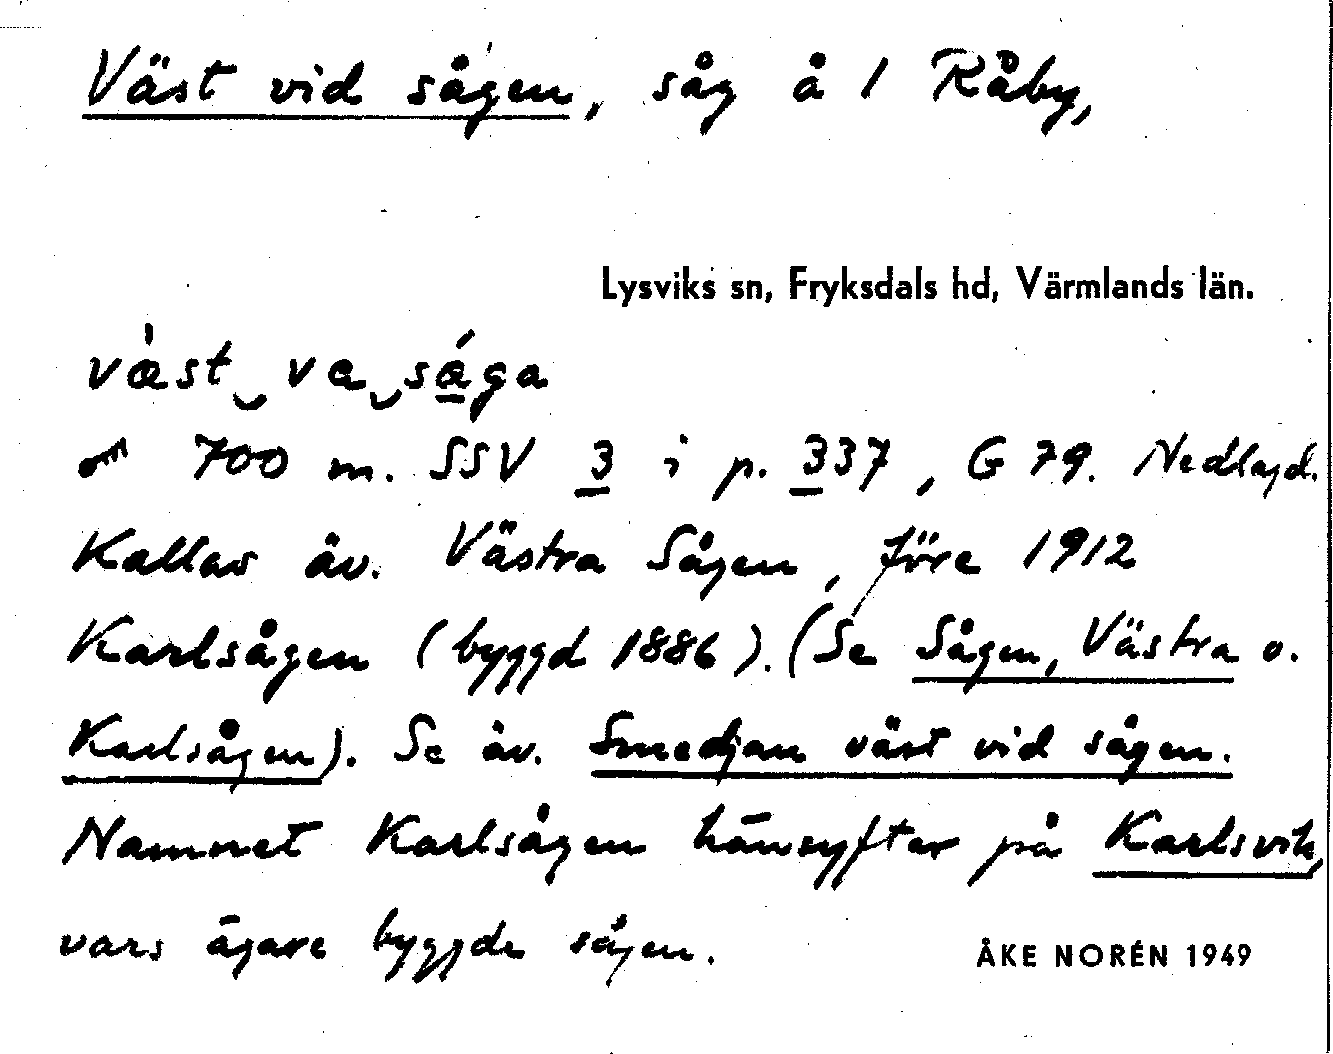 Väst vid sågen, såg å 1 Råby,
Lysviks sn, Fryksdals hd, Värmlands län.
væ̀st‿va‿sǽ̱ga
700 m. SSV 3 i p. 337, G 79. Nedlagd.
Kallas äv. Västra Sågen, före 1912
Karlsågen (byggd 1886). (Se Sågen, Västra o.
Karlsågen). Se äv. Smedjan väst vid sågen.
Namnet Karlsågen hänsyftar på Karlsvik,
vars ägare byggde sågen.
ÅKE NORÉN 1949